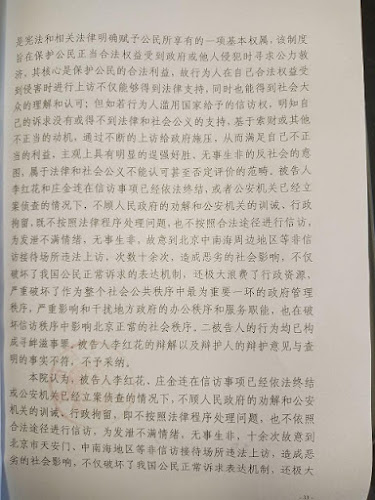 是宪法和相关法律明确赋予公民所享有的一项基本权属，该制度
旨在保护公民正当合法权益受到政府或他人侵犯时寻求公力救
济，其核心是保护公民的合法利益，故行为人在自己合法权益受
到侵害时进行上访不仅能够得到法律支持，同时也能得到社会大
众的理解和认可；但如若行为人滥用国家给予的信访权，明知自
己的诉求没有或得不到法律和社会公义的支持，基于索财或其他
不正当的动机，通过不断的上访给政府施压，从而满足自己不正
当的利益，主观上具有明显的逞强好胜、无事生非的反社会的意
图，属于法律和社会公义不能认可甚至否定评价的范畴。被告人
李红花和庄金连在信访事项已经依法终结，或者公安机关已经立
案侦查的情况下，不顾人民政府的劝解和公安机关的训诫、行政
拘留，既不按照法律程序处理问题，也不按照合法途径进行信访，
为发泄不满情绪，无事生非，故意到北京中南海周边地区等非信
访接待场所违法上访，次数十余次，造成恶劣的社会影响，不仅
破坏了我国公民正常诉求的表达机制，还极大浪费了行政资源，
严重破坏了作为整个社会公共秩序中最为重要一环的政府管理
秩序，严重影响和干扰地方政府的办公秩序和服务职能，也在破
坏信访秩序中影响北京正常的社会秩序。二被告人的行为均已构
成寻衅滋事罪。被告人李红花的辩解以及辩护人的辩护意见与查
明的事实不符，不予采纳。
本院认为，被告人李红花、庄金连在信访事项已经依法终结
或公安机关已经立案侦查的情况下，不顾人民政府的劝解和公安
机关的训诫、行政拘留，即不按照法律程序处理问题，也不依照
合法途径进行信访，为发泄不满情绪，无事生非，十余次故意到
北京市天安门、中南海地区等非信访接待场所违法上访，造成恶
劣的社会影响，不仅破坏了我国公民正常诉求表达机制，还极大